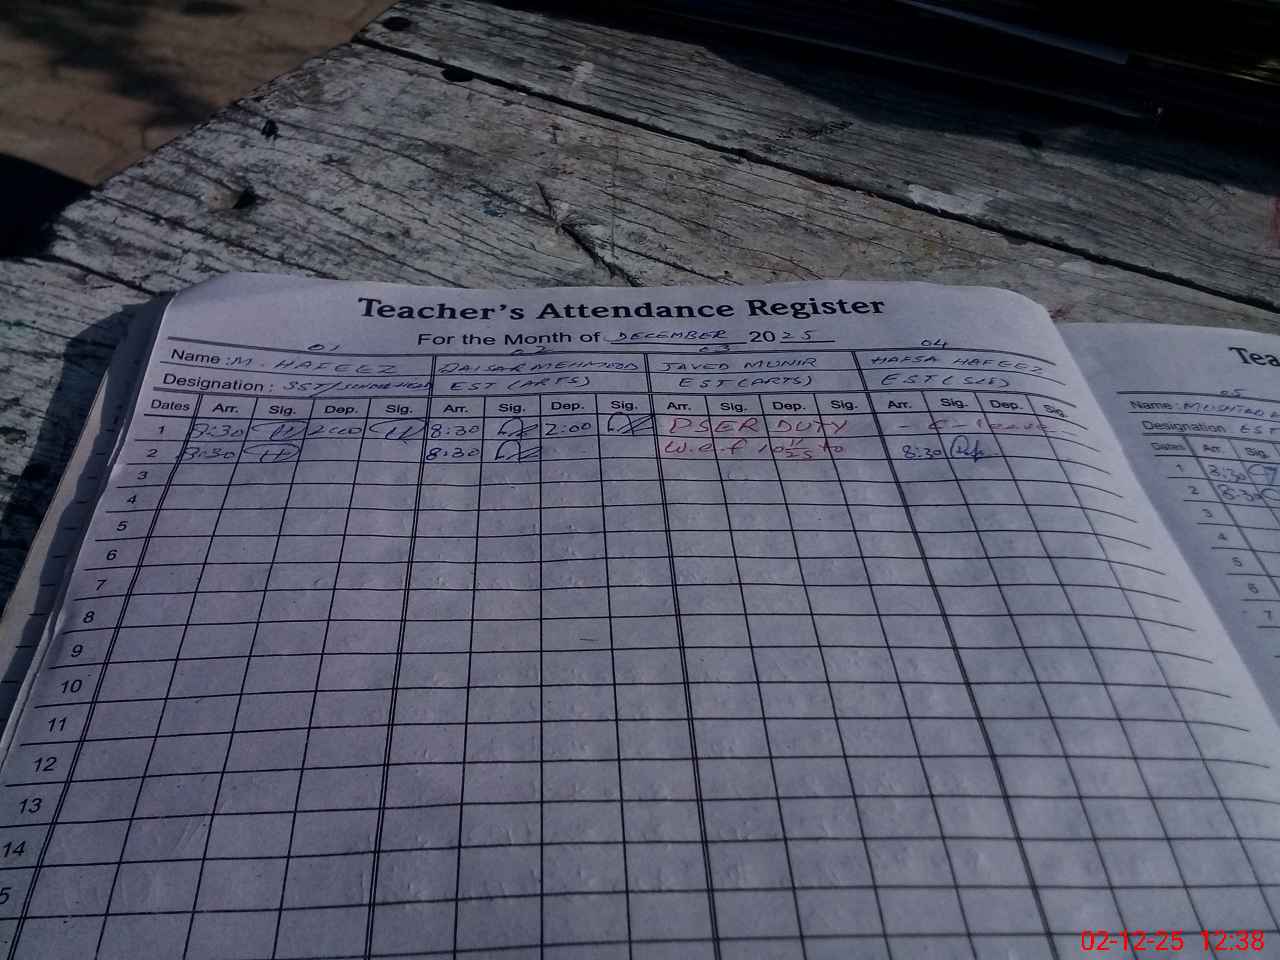 Teacher's Attendance Register
For the Month of DECEMBER 2025
01 02 03 04
Name : M. HAFEEZ QAISAR MEHMOOD JAVED MUNIR HAFSA HAFEEZ
Designation : SST/ EST (ARTS) EST (ARTS) EST (SCI)
Dates Arr. Sig. Dep. Sig. Arr. Sig. Dep. Sig. Arr. Sig. Dep. Sig. Arr. Sig. Dep. Sig.
1 8:30 2:00 8:30 2:00 PSER DUTY - C - Leave -
2 8:30 8:30 w.e.f to 8:30
3
4
5
6
7
8
9
10
11
12
13
14
5
Tea
05
Name : MUSHTAQ
Designation EST
Dates Arr.
1 8:30
2 8:30
3
4
5
6
7
02-12-25 12:38